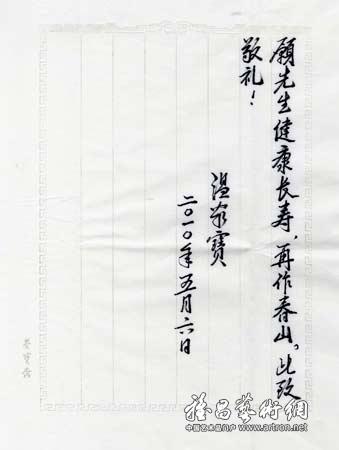 願先生健康长寿、再作春山。此致
敬礼！
温家寶
二〇一〇年五月六日
荣宝斋
雅昌藝術網
中国艺术品门户 www.artron.net